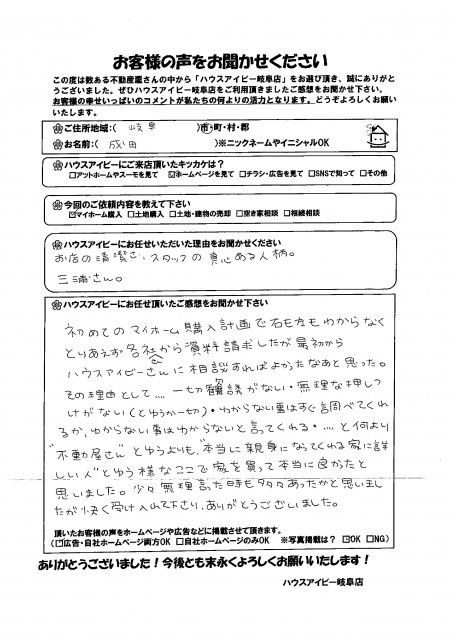 お客様の声をお聞かせください
この度は数ある不動産屋さんの中から「ハウスアイビー岐阜店」をお選び頂き、誠にありがと
うございました。ぜひハウスアイビー岐阜店をご利用頂きましたご感想をお聞かせ下さい。
お客様の幸せいっぱいのコメントが私たちの何よりの活力となります。どうぞよろしくお願い
いたします。
ご住所地域:( 岐阜 )市・町・村・郡
お名前:( 成田 )※ニックネームやイニシャルOK
ハウスアイビーにご来店頂いたキッカケは?
□アットホームやスーモを見て ☑ホームページを見て □チラシ・広告を見て □SNSで知って □その他
今回のご依頼内容を教えて下さい
☑マイホーム購入 □土地購入 □土地・建物の売却 □空き家相談 □相続相談
ハウスアイビーにお任せいただいた理由をお聞かせください
お店の清潔さ、スタッフの真心ある人柄。
三浦さん。
ハウスアイビーにお任せ頂いたご感想をお聞かせ下さい
初めてのマイホーム購入計画で右も左もわからなく
とりあえず各会社から資料請求したが最初から
ハウスアイビーさんに相談すればよかったなあと思った。
その理由として.... 一切勧誘がない・無理な押しつ
けがない(とゆうか一切)・わからない事はすぐ調べてくれ
るか、わからない事はわからないと言ってくれる・....と何より
"不動屋さん"とゆうよりも、"本当に親身になってくれる家に詳
しい人"とゆう様なここで家を買って本当に良かったと
思いました。少々無理言った時も多々あったかと思いまし
たが快く受け入れて下さり、ありがとうございました。
頂いたお客様の声をホームページや広告などに掲載させて頂きます。
(☑広告・自社ホームページ両方OK □自社ホームページのみOK ※写真掲載は? ☑OK □NG)
ありがとうございました!今後とも末永くよろしくお願いいたします!
ハウスアイビー岐阜店